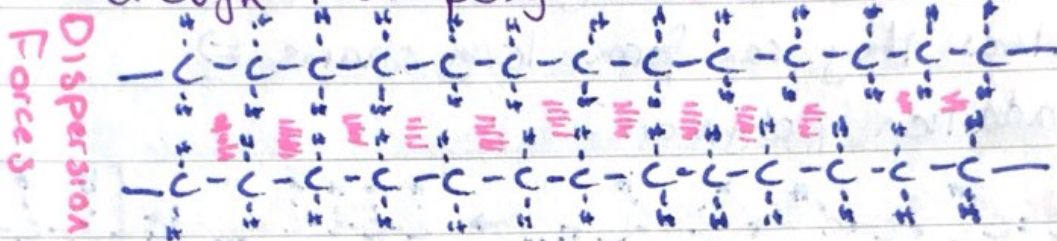 Dispersion
Forces
H H H H H H H H H H H H H
—C-C-C-C-C-C-C-C-C-C-C-C-C—
H H H H H H H H H H H H H
H H H H H H H H H H H H H
—C-C-C-C-C-C-C-C-C-C-C-C-C—
H H H H H H H H H H H H H